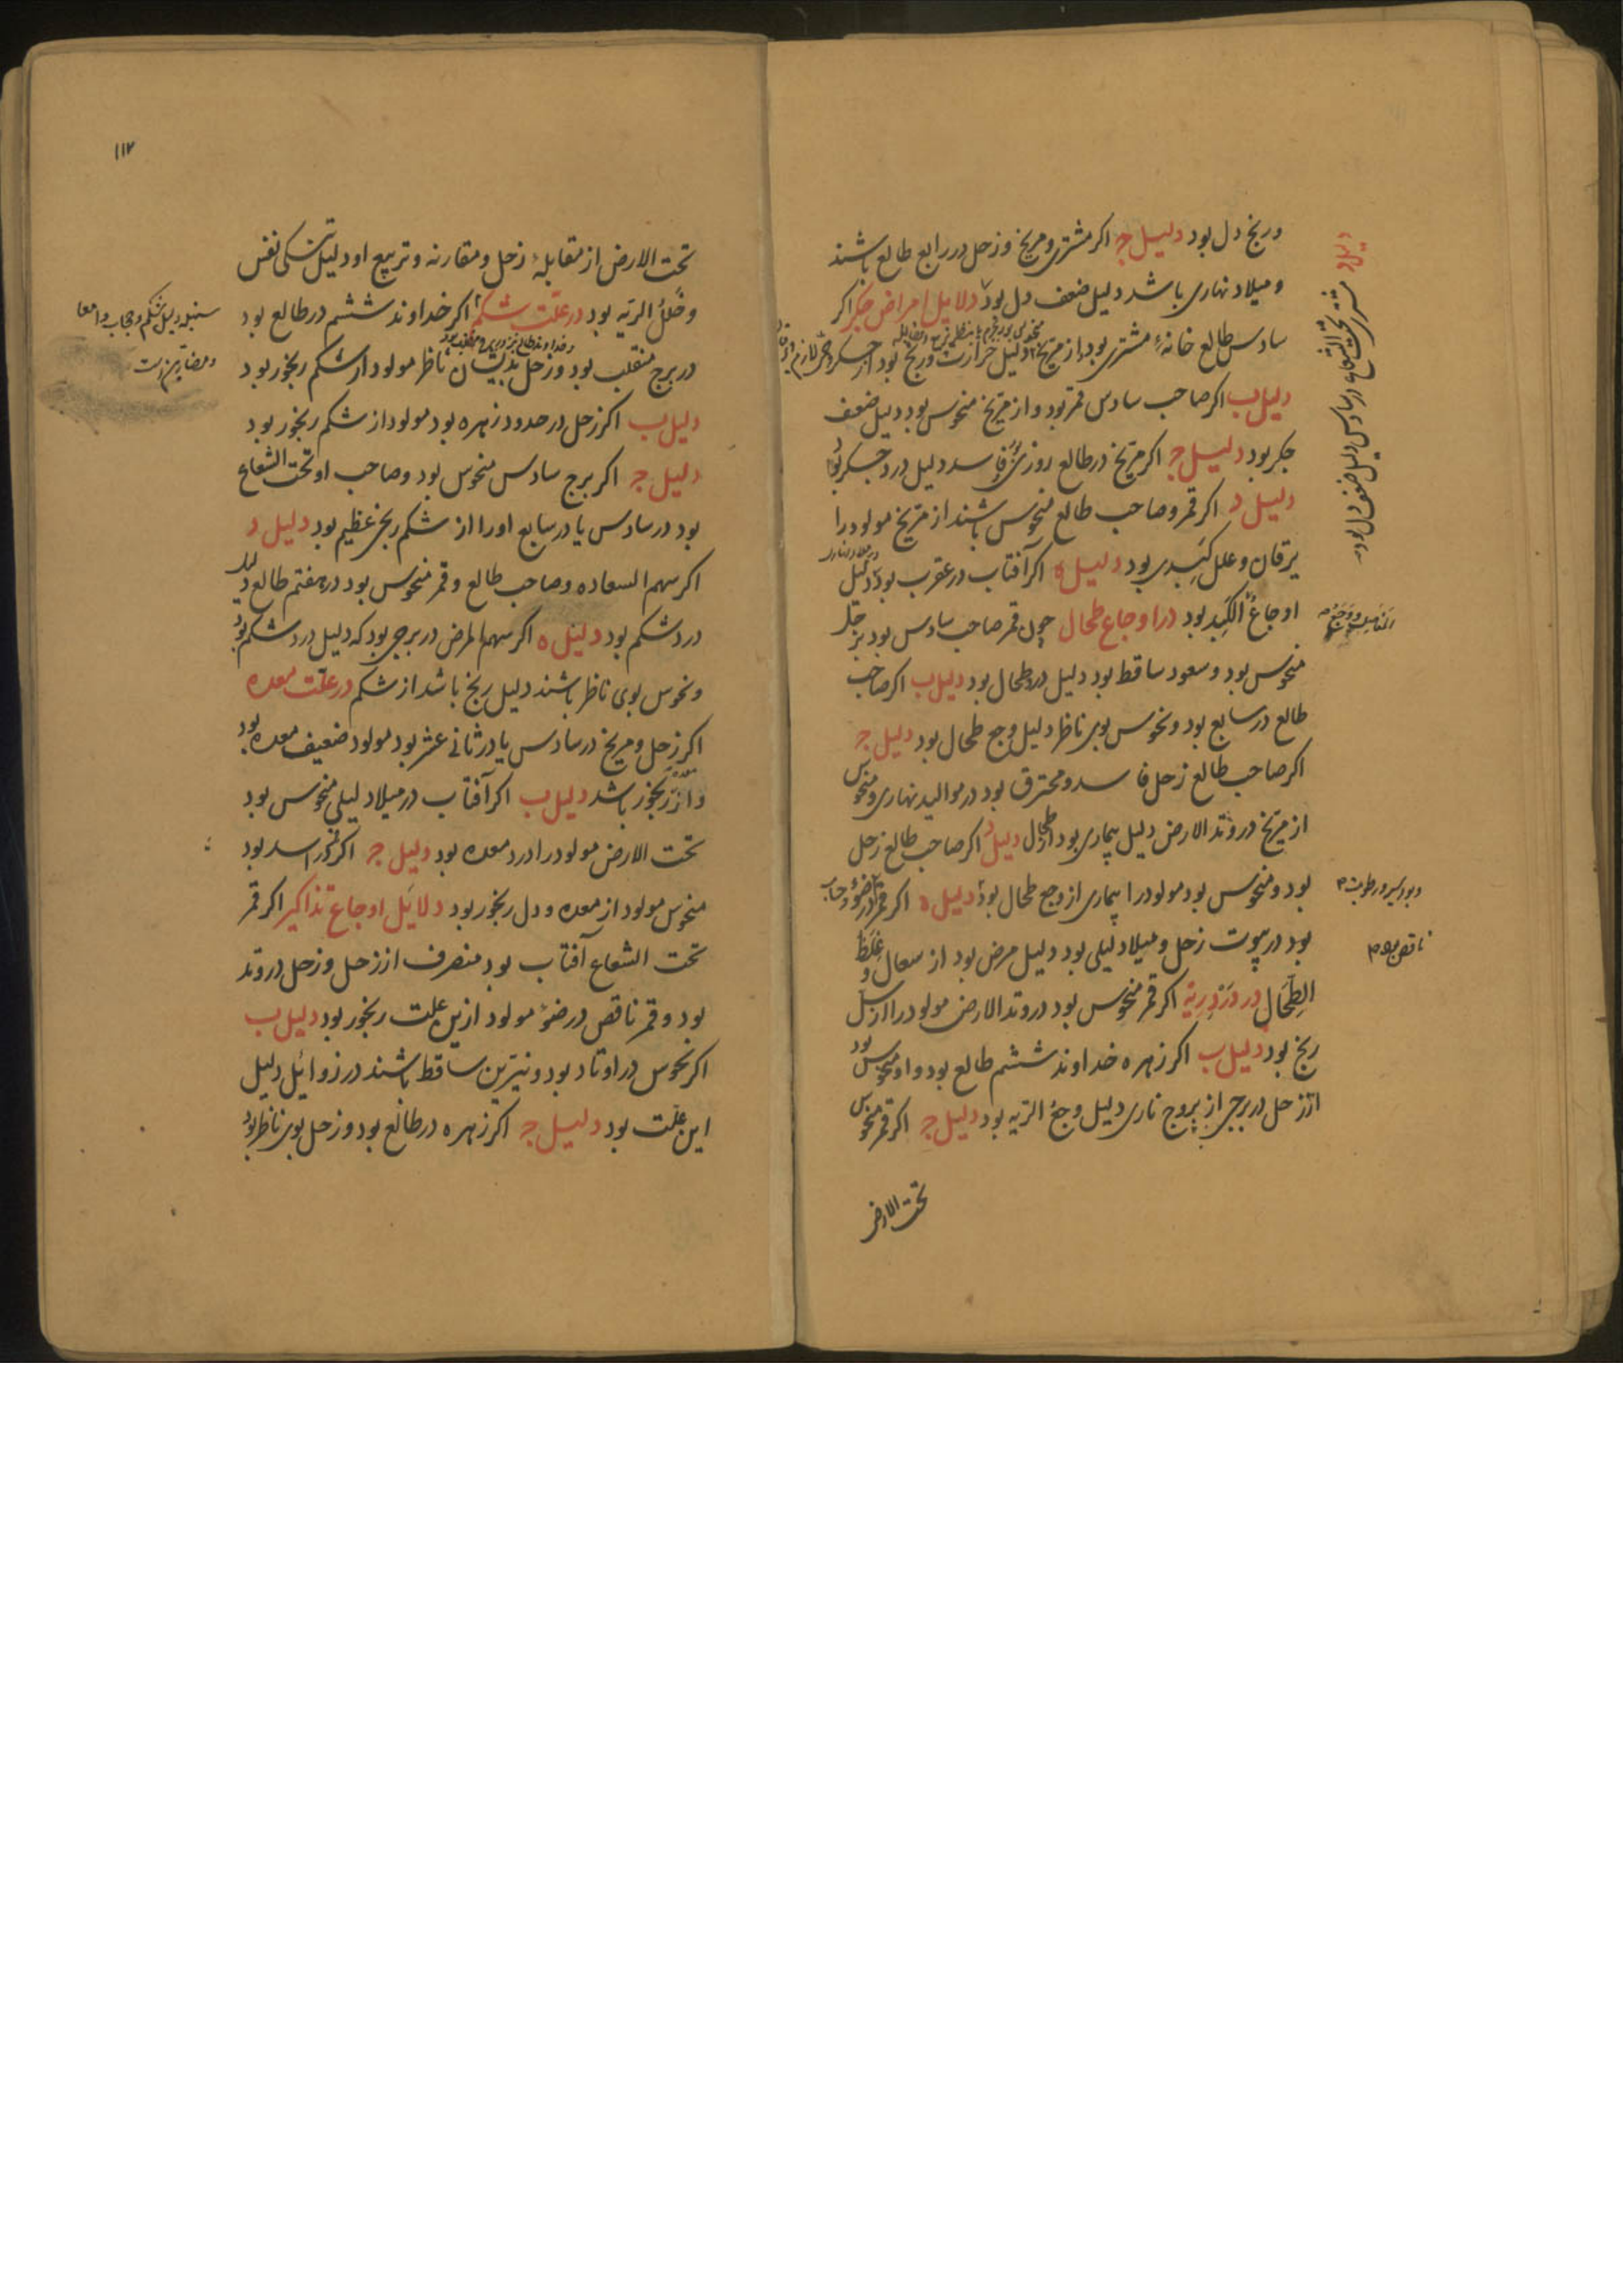 ورنج دل بود دلیل جـ اکر مشتری و مریخ و زحل در رابع طالع باشند
و میلاد نهاری باشد دلیل ضعف دل بود دلایل امراض جکر اکر
سادس طالع خانهٔ مشتری بود و از مریخ دلیل حرارت و رنج بود از جکر
دلیل ب اکر صاحب سادس قمر بود و از مریخ منحوس بود دلیل ضعف
جکر بود دلیل جـ اکر مریخ در طالع روزی فاسد دلیل درد جکر بود
دلیل د اکر قمر و صاحب طالع منحوس باشند از مریخ مولود را
یرقان و علل کبدی بود دلیل ه اکر آفتاب در عقرب بود دلیل
اوجاع الکبد بود در اوجاع طحال چون قمر صاحب سادس بود بزحل
منحوس بود و سعود ساقط بود دلیل درد طحال بود دلیل ب اکر صاحب
طالع در سابع بود و نحوس بوی ناظر دلیل وجع طحال بود دلیل جـ
اکر صاحب طالع زحل فاسد و محترق بود در موالید نهاری و منحوس
از مریخ در وتد الارض دلیل بیماری بود از طحال دلیل د اکر صاحب طالع زحل
بود و منحوس بود مولود را بیماری از وجع طحال بود دلیل ه اکر قمر در ضوء و حساب
بود در بیوت زحل و میلاد لیلی بود دلیل مرض بود از سعال و غلظ
الطحال در درد ریه اکر قمر منحوس بود در وتد الارض مولود را از سل
رنج بود دلیل ب اکر زهره خداوند ششم طالع بود و او منحوس بود
از زحل در برجی از بروج ناری دلیل وجع الریه بود دلیل جـ اکر قمر منحوس
تحت الارض
دلیل د مشتری تحت الشعاع در سادس دلیل ضعف دل بود
ناقص بود
۱۱۷
تحت الارض از مقابلهٔ زحل و مقارنه و تربیع او دلیل تنکی نفس
و خلل الریه بود در علّت شکم اکر خداوند ششم در طالع بود
در برج منقلب بود و زحل بدیشان ناظر مولود از شکم رنجور بود
دلیل ب اکر زحل در حدود زهره بود مولود از شکم رنجور بود
دلیل جـ اکر برج سادس منحوس بود و صاحب او تحت الشعاع
بود در سادس یا در سابع او را از شکم رنج عظیم بود دلیل د
اکر سهم السعاده و صاحب طالع و قمر منحوس بود در هفتم طالع دلیل
درد شکم بود دلیل ه اکر سهم المرض در برجی بود که دلیل درد شکم بود
و نحوس بوی ناظر باشند دلیل رنج باشد از شکم در علّت معده
اکر زحل و مریخ در سادس یا در ثانی عشر بود مولود ضعیف معده بود
و از رنجور باشد دلیل ب اکر آفتاب در میلاد لیلی منحوس بود
تحت الارض مولود را درد معده بود دلیل جـ اکر در اسد بود
منحوس مولود از معده و دل رنجور بود دلایل اوجاع تذاکیر اکر قمر
تحت الشعاع آفتاب بود منصرف از زحل و زحل در وتد
بود و قمر ناقص در ضوء مولود ازین علت رنجور بود دلیل ب
اکر نحوس در اوتاد بود و نیّرین ساقط باشند در زوایل دلیل
این علّت بود دلیل جـ اکر زهره در طالع بود و زحل بوی ناظر بود
سنبله دلیل شکم و حجاب و امعا